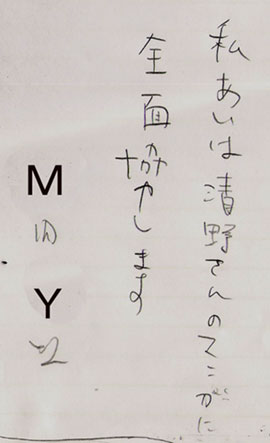 私あいは清野さんのマンガに
全面協力します
M
Y